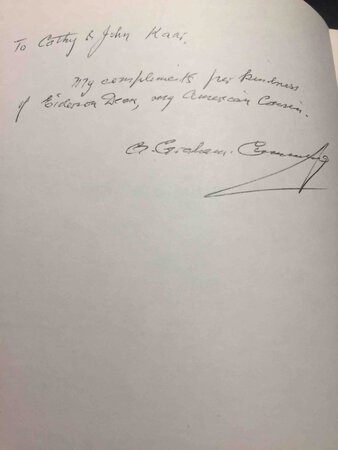 To Cathy & John Karr.
My compliments per kindness
of Eiderson Dean, my American Cousin.
G. Graham-Cumming